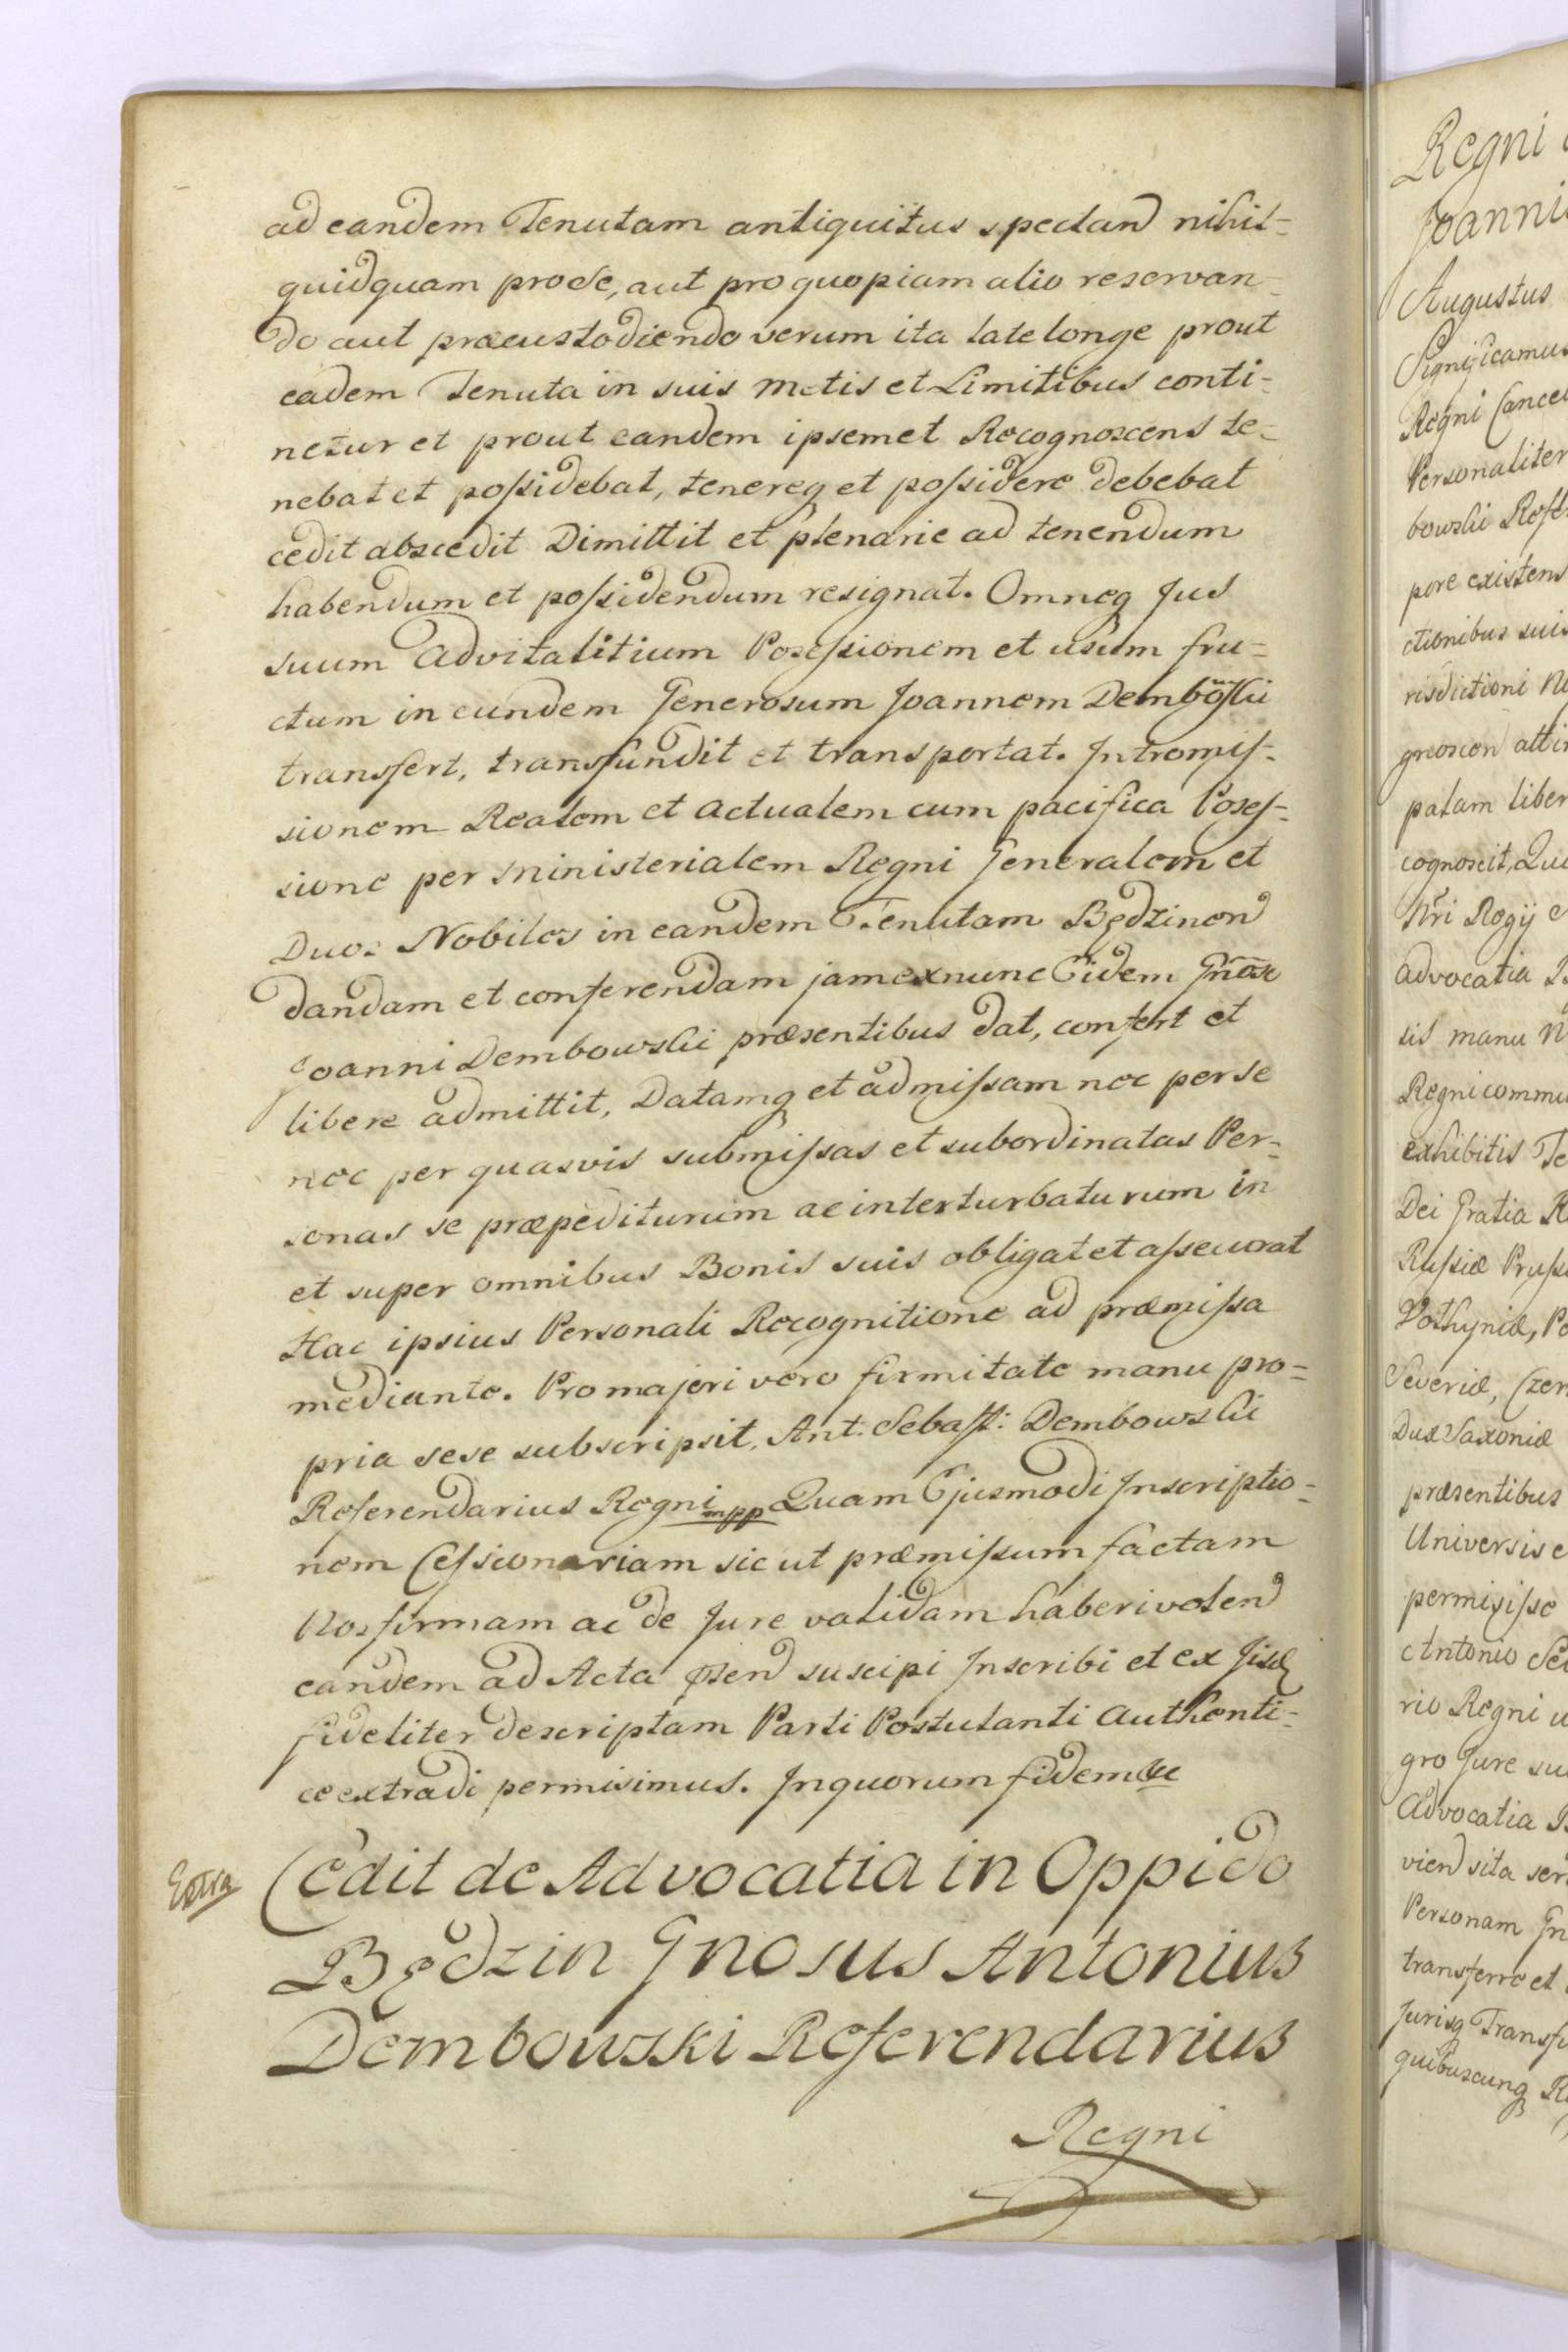 ad eandem Tenutam antiquitus spectand nihil=
quidquam pro se, aut pro quopiam alio reservan=
do aut præcustodiendo verum ita late longe prout
eadem Tenuta in suis Metis et Limitibus conti=
netur et prout eandem ipsemet Recognoscens te=
nebat et possidebat, tenereq et possidere debebat
cedit abscedit Dimittit et plenarie ad tenendum
habendum et possidendum resignat. Omneq Jus
suum Advitalitium Possessionem et usum fru=
ctum in eundem Generosum Joannem Dembowski
transfert, transfundit et transportat. Intromis=
sionem Realem et actualem cum pacifica Posses=
sione per Ministerialem Regni Generalem et
Duos Nobiles in eandem Tenutam Będzinen
dandam et conferendam jam ex nunc Eidem Gnoso
Joanni Dembowski præsentibus dat, confert et
libere admittit, Datamq et admissam nec per se
nec per quasvis submissas et subordinatas Per=
sonas se præpediturum ac interturbaturum in
et super omnibus Bonis suis obligat et assecurat
Hac ipsius Personali Recognitione ad præmissa
mediante. Pro majori vero firmitate manu pro=
pria sese subscripsit, Ant: Sebast: Dembowski
Referendarius Regni mpp Quam Ejusmodi Inscriptio=
nem Cessionariam sic ut præmissum factam
Nos firmam ac de Jure validam haberi volend
eandem ad Acta psen suscipi Inscribi et ex Iisd
fideliter descriptam Parti Postulanti Authenti=
ce extradi permisimus. In quorum fidem &c
Extra
Cedit de Advocatia in Oppido
Będzin Gnosus Antonius
Dembowski Referendarius
Regni
Regni
Joanni
Augustus
Significamus
Regni Cancel
Personaliter
bowski Refe
pore existens
ctionibus suis
risdictioni N
gnoscen atti
palam liber
cognoscit, Qu
Nri Regij
Advocatia
sis manu N
Regni commu
exhibitis Te
Dei Gratia R
Russiæ Pruss
Volhyniæ, Po
Severiæ, Czer
Dux Saxoniæ
præsentibus
Universis e
permisisse
Antonio Se
rio Regni
gro Jure su
Advocatia
vien sita ser
Personam Gn
transferre et
Jurisq Transfu
quibuscunq R